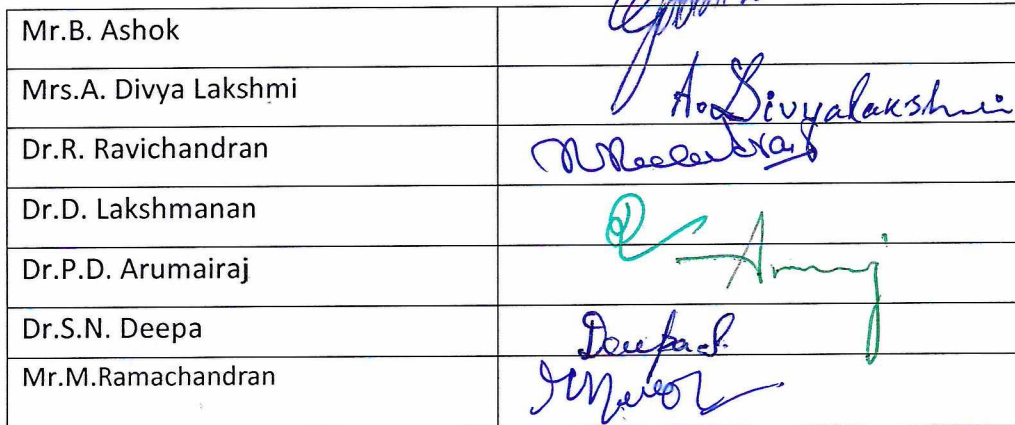 Mr.B. Ashok
Mrs.A. Divya Lakshmi
A. Divyalakshmi
Dr.R. Ravichandran
Dr.D. Lakshmanan
Dr.P.D. Arumairaj
Dr.S.N. Deepa
Deepa S.
Mr.M.Ramachandran